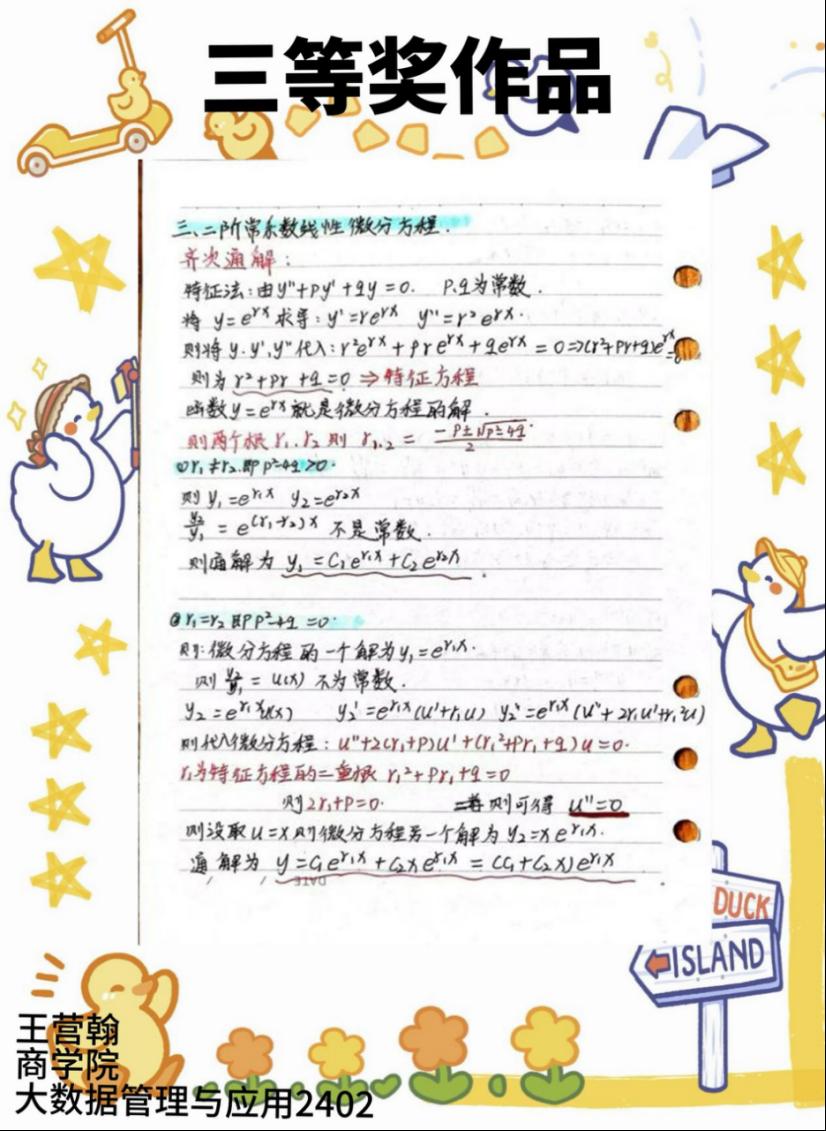 三等奖作品
三、二阶常系数线性微分方程.
齐次通解:
特征法:由y''+py'+qy=0. p.q为常数.
将 y=e^{rx} 求导: y'=re^{rx} y''=r²e^{rx}.
则将 y.y',y''代入: r²e^{rx}+pre^{rx}+qe^{rx}=0⇒(r²+pr+q)e^{rx}=0
则为 r²+pr+q=0 ⇒特征方程
函数y=e^{rx}就是微分方程的解.
则两个根r₁.r₂则 r₁.₂ = \frac{-p±\sqrt{p²-4q}}{2}
①r₁≠r₂.即p²-4q>0.
则 y₁=e^{r₁x} y₂=e^{r₂x}
\frac{y₂}{y₁} = e^{(r₁-r₂)x} 不是常数.
则通解为 y₁=C₁e^{r₁x}+C₂e^{r₂x}.
②r₁=r₂即p²-4q=0.
则:微分方程的一个解为y₁=e^{r₁x}.
则 \frac{y₂}{y₁} = u(x) 不为常数.
y₂=e^{r₁x}u(x) y₂'=e^{r₁x}(u'+r₁u) y₂''=e^{r₁x}(u''+2r₁u'+r₁²u)
则代入微分方程: u''+2(r₁+p)u'+(r₁²+pr₁+q)u=0.
r₁为特征方程的二重根 r₁²+pr₁+q=0
则2r₁+p=0. 则可得 u''=0
则设取u=x则微分方程另一个解为y₂=xe^{r₁x}.
通解为 y=C₁e^{r₁x}+C₂xe^{r₁x}=(C₁+C₂x)e^{r₁x}
DATE
DUCK
ISLAND
王营翰
商学院
大数据管理与应用2402